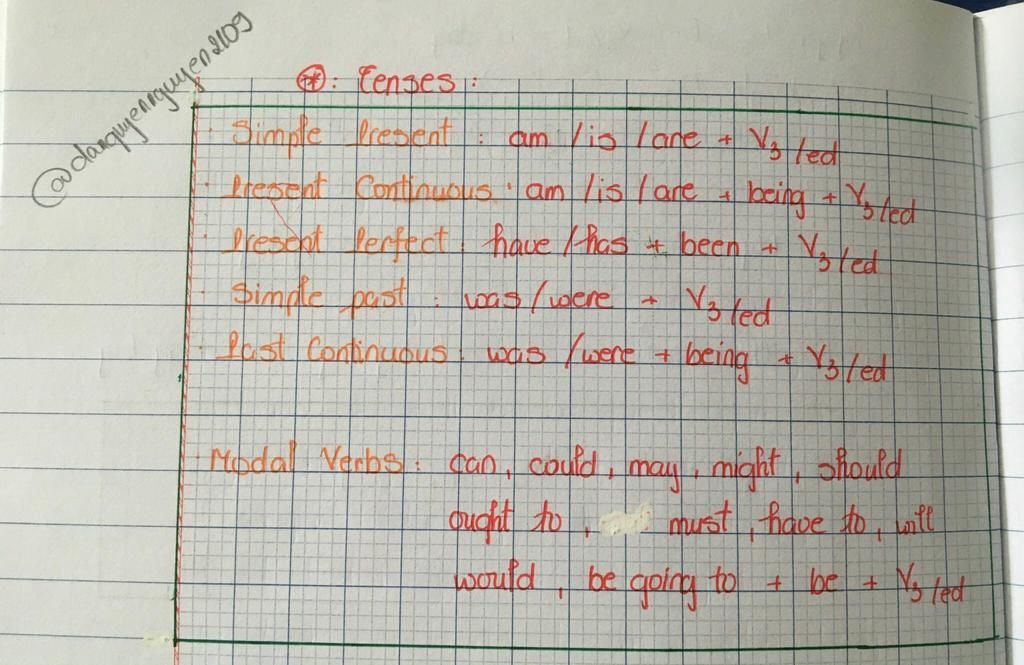 @danguyennguyen2109
*: Tenses:
· Simple Present : am / is / are + V3/ed
· Present Continuous : am / is / are + being + V3/ed
· Present Perfect : have / has + been + V3/ed
· Simple past : was / were + V3/ed
· Past Continuous : was / were + being + V3/ed
· Modal Verbs : can, could, may, might, should
ought to, must, have to, will
would, be going to + be + V3/ed